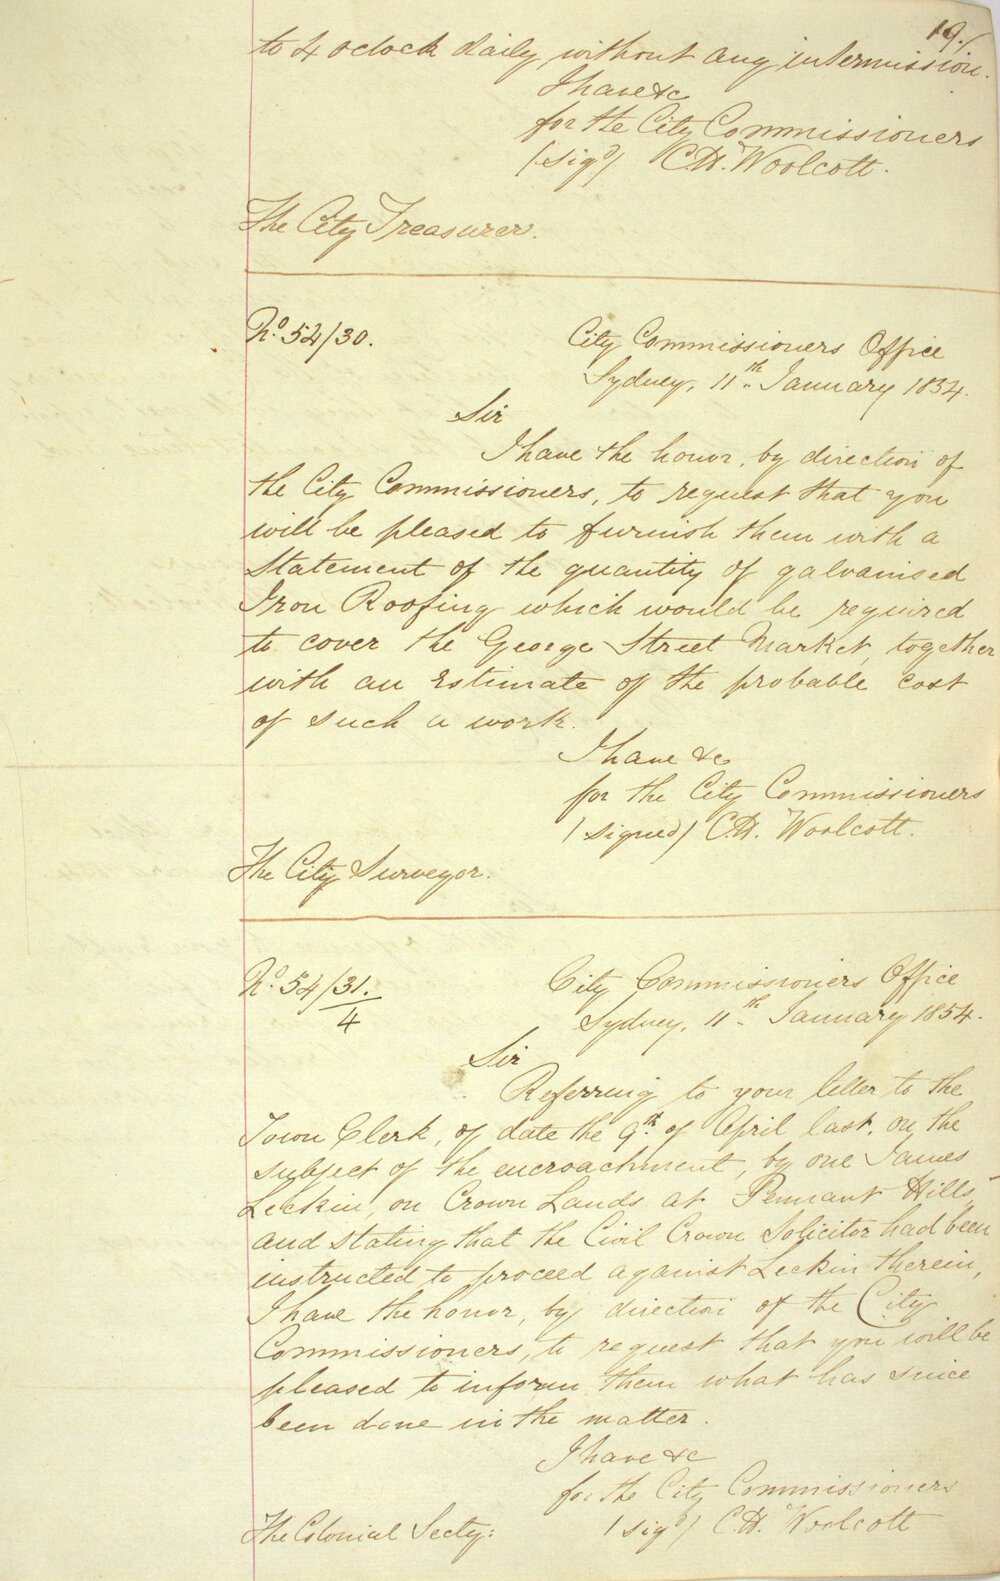 19./
to 4 oclock daily, without any intermission.
I have &c
for the City Commissioners
(Sigd) C.H. Woolcott.
The City Treasurer.
No. 54/30.
City Commissioners Office
Sydney, 11th. January 1854.
Sir
I have the honor, by direction of
the City Commissioners, to request that you
will be pleased to furnish them with a
Statement of the quantity of galvanised
Iron Roofing which would be required
to cover the George Street Market, together
with an Estimate of the probable cost
of such a work.
I have &c
for the City Commissioners
(Signed) C.H. Woolcott.
The City Surveyor.
No. 54/31.
4
City Commissioners Office
Sydney, 11th. January 1854.
Sir
Referring to your letter to the
Town Clerk, of date the 9th. of April last, on the
subject of the encroachment, by one James
Leckin, on Crown Lands at Pennant Hills,
and stating that the Civil Crown Solicitor had been
instructed to proceed against Leckin therein,
I have the honor, by direction of the City
Commissioners, to request that you will be
pleased to inform them what has since
been done in the matter.
I have &c
for the City Commissioners
(Sigd) C.H. Woolcott
The Colonial Secty: